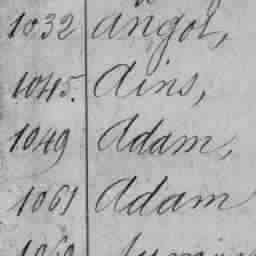 1032 Angol,
1045. Ains,
1049 Adam,
1061 Adam
1069